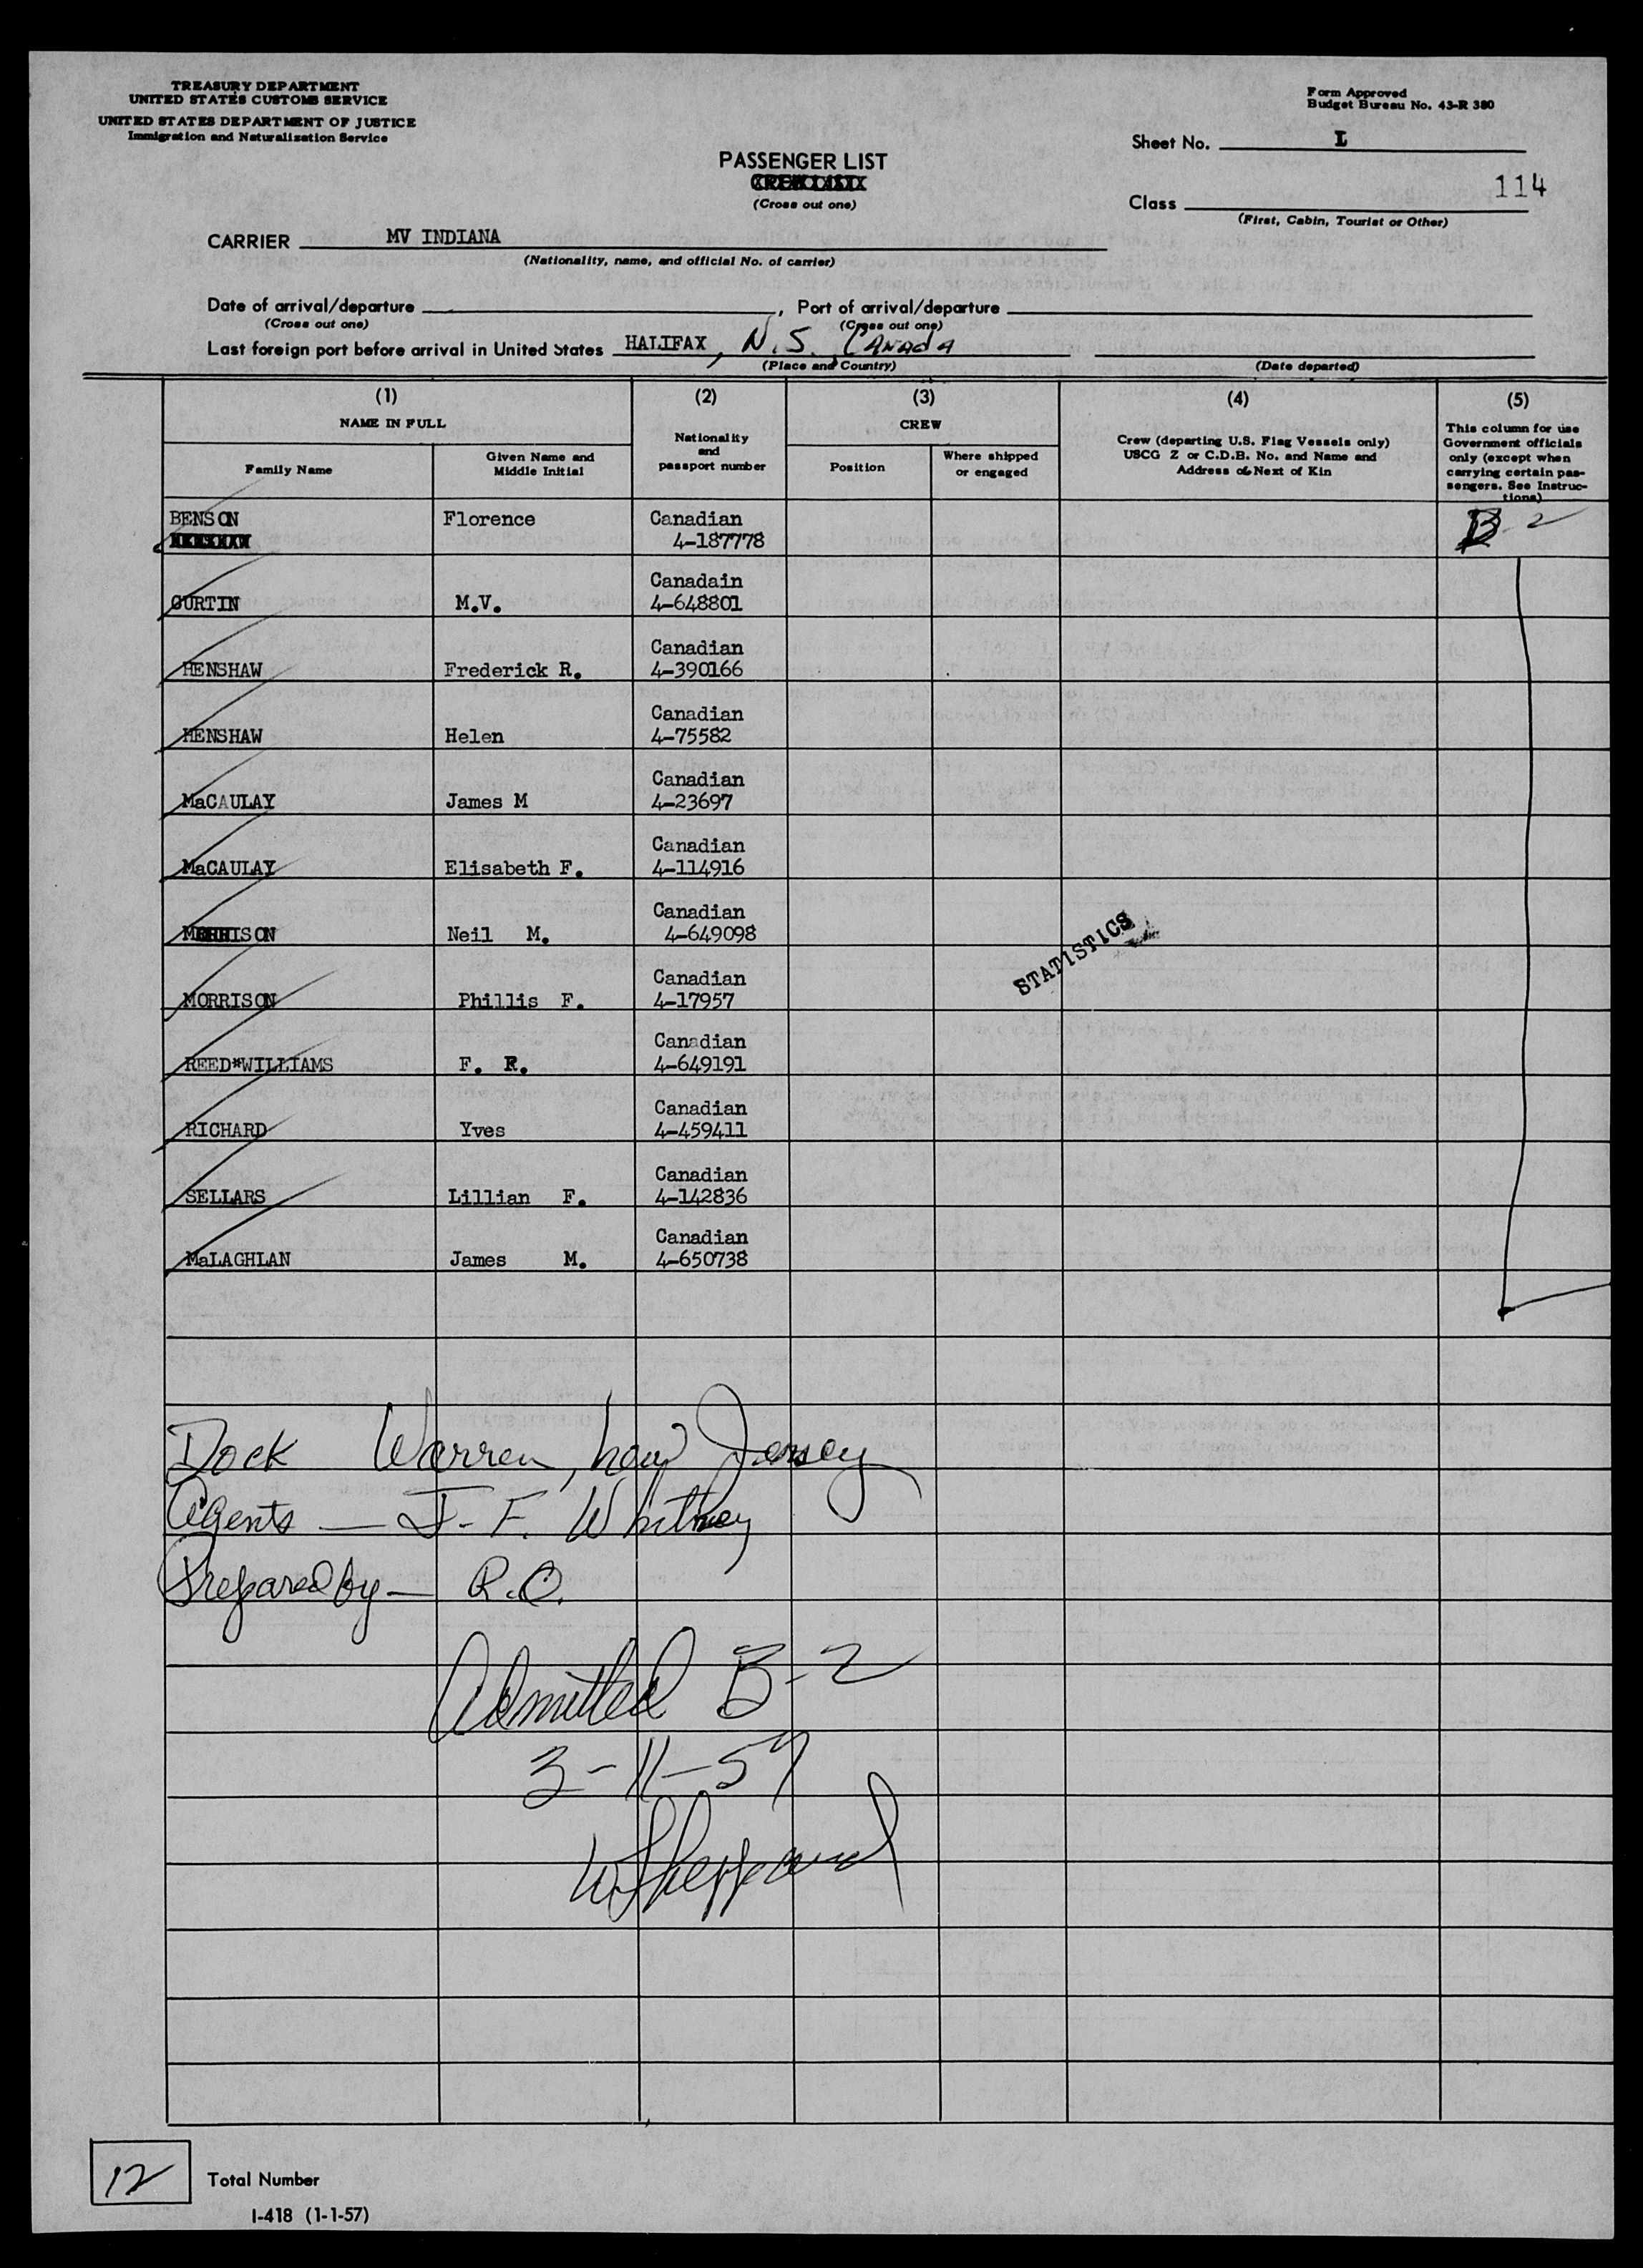 TREASURY DEPARTMENT
UNITED STATES CUSTOMS SERVICE
UNITED STATES DEPARTMENT OF JUSTICE
Immigration and Naturalization Service
Form Approved
Budget Bureau No. 43-R 380
Sheet No. I
PASSENGER LIST
(Cross out one)
114
Class
(First, Cabin, Tourist or Other)
CARRIER MV INDIANA
(Nationality, name, and official No. of carrier)
Date of arrival/departure , Port of arrival/departure
(Cross out one) (Cross out one)
Last foreign port before arrival in United States HALIFAX, N.S. CANADA
(Place and Country) (Date departed)
(1) (2) (3) (4) (5)
NAME IN FULL
Family Name
Given Name and
Middle Initial
Nationality
and
passport number
CREW
Position
Where shipped
or engaged
Crew (departing U.S. Flag Vessels only)
USCG Z or C.D.B. No. and Name and
Address of Next of Kin
This column for use
Government officials
only (except when
carrying certain pas-
sengers. See Instruc-
tions)
BENSON Florence Canadian B 2
4-187778
Canadain
CURTIN M.V. 4-648801
Canadian
HENSHAW Frederick R. 4-390166
Canadian
HENSHAW Helen 4-75582
Canadian
MaCAULAY James M 4-23697
Canadian
MaCAULAY Elisabeth F. 4-114916
Canadian
MORRISON Neil M. 4-649098
STATISTICS
Canadian
MORRISON Phillis F. 4-17957
Canadian
REED*WILLIAMS F. R. 4-649191
Canadian
RICHARD Yves 4-459411
Canadian
SELLARS Lillian F. 4-142836
Canadian
MaLAGHLAN James M. 4-650738
Dock Warren, new Jersey
Agents — J. F. Whitney
Prepared by — R.O.
Admitted B-2
3-11-57
W Sheppard
12 Total Number
I-418 (1-1-57)